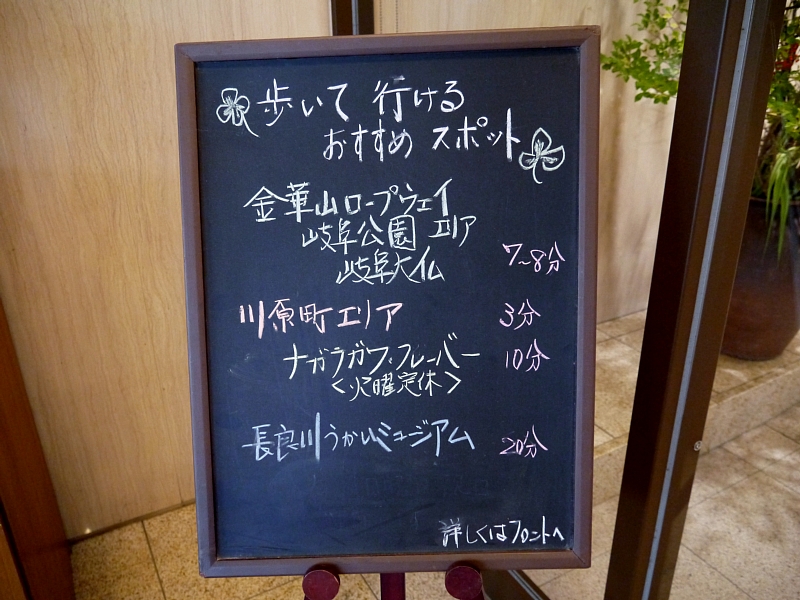 歩いて 行ける
おすすめ スポット
金華山ロープウェイ
岐阜公園 エリア
岐阜大仏 7~8分
川原町エリア 3分
ナガラガワ・フレーバー 10分
<火曜定休>
長良川うかいミュージアム 20分
詳しくはフロントへ